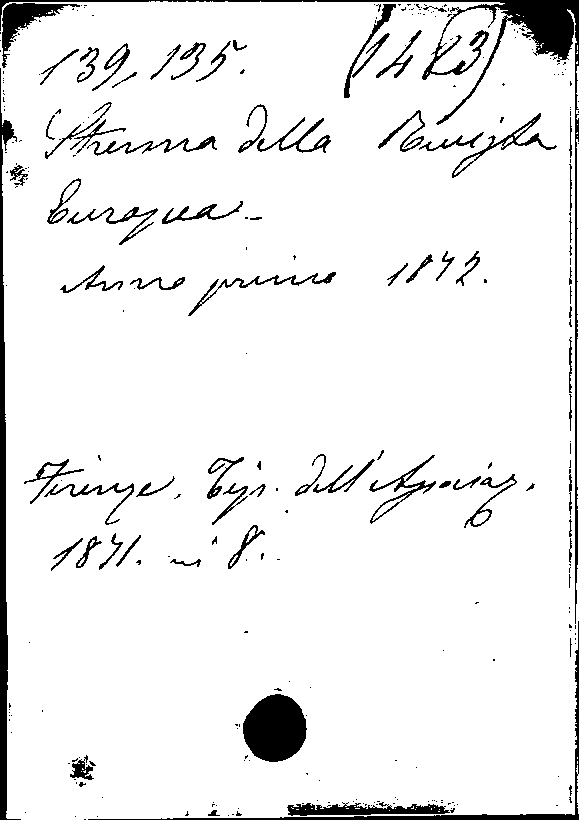 139,135. (1423)
Strenna della Rivista
Europea.-
Anno primo 1872.
Firenze. Tip. dell'Associaz.
1871. in 8.